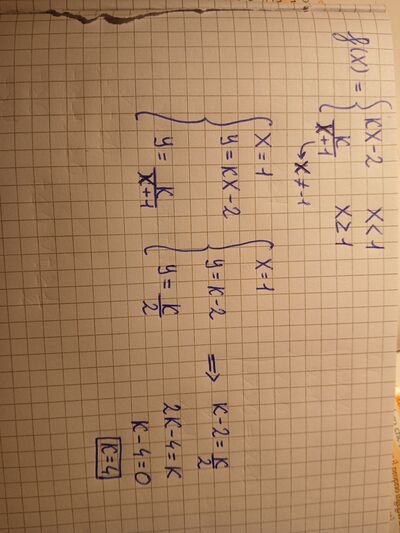 f(x) = { kx-2 x<1
k/x+1 x≥1
↳ x≠-1
{ x=1
y=kx-2
y=k/x+1
{ x=1
y=k-2
y=k/2
⇒ k-2=k/2
2k-4=k
k-4=0
k=4